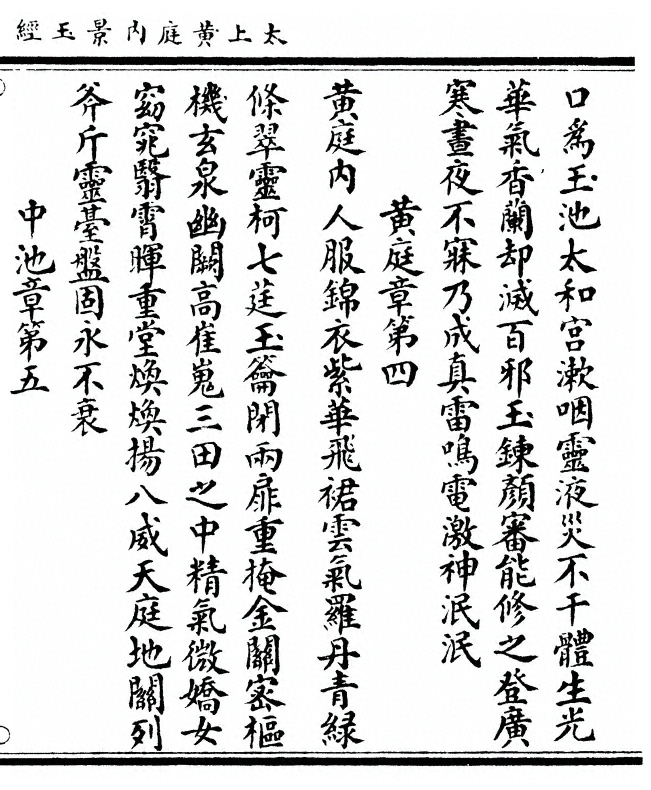 太上黄庭内景玉經
口爲玉池太和宫漱咽靈液災不干體生光
華氣香蘭却滅百邪玉鍊顏審能修之登廣
寒晝夜不寐乃成真雷鳴電激神泯泯
黄庭章第四
黄庭内人服錦衣紫華飛裙雲氣羅丹青緑
條翠靈柯七莛玉籥閉兩扉重掩金關密樞
機玄泉幽闕高崔嵬三田之中精氣微嬌女
窈窕翳霄暉重堂煥煥揚八威天庭地關列
斧斤靈臺盤固永不衰
中池章第五